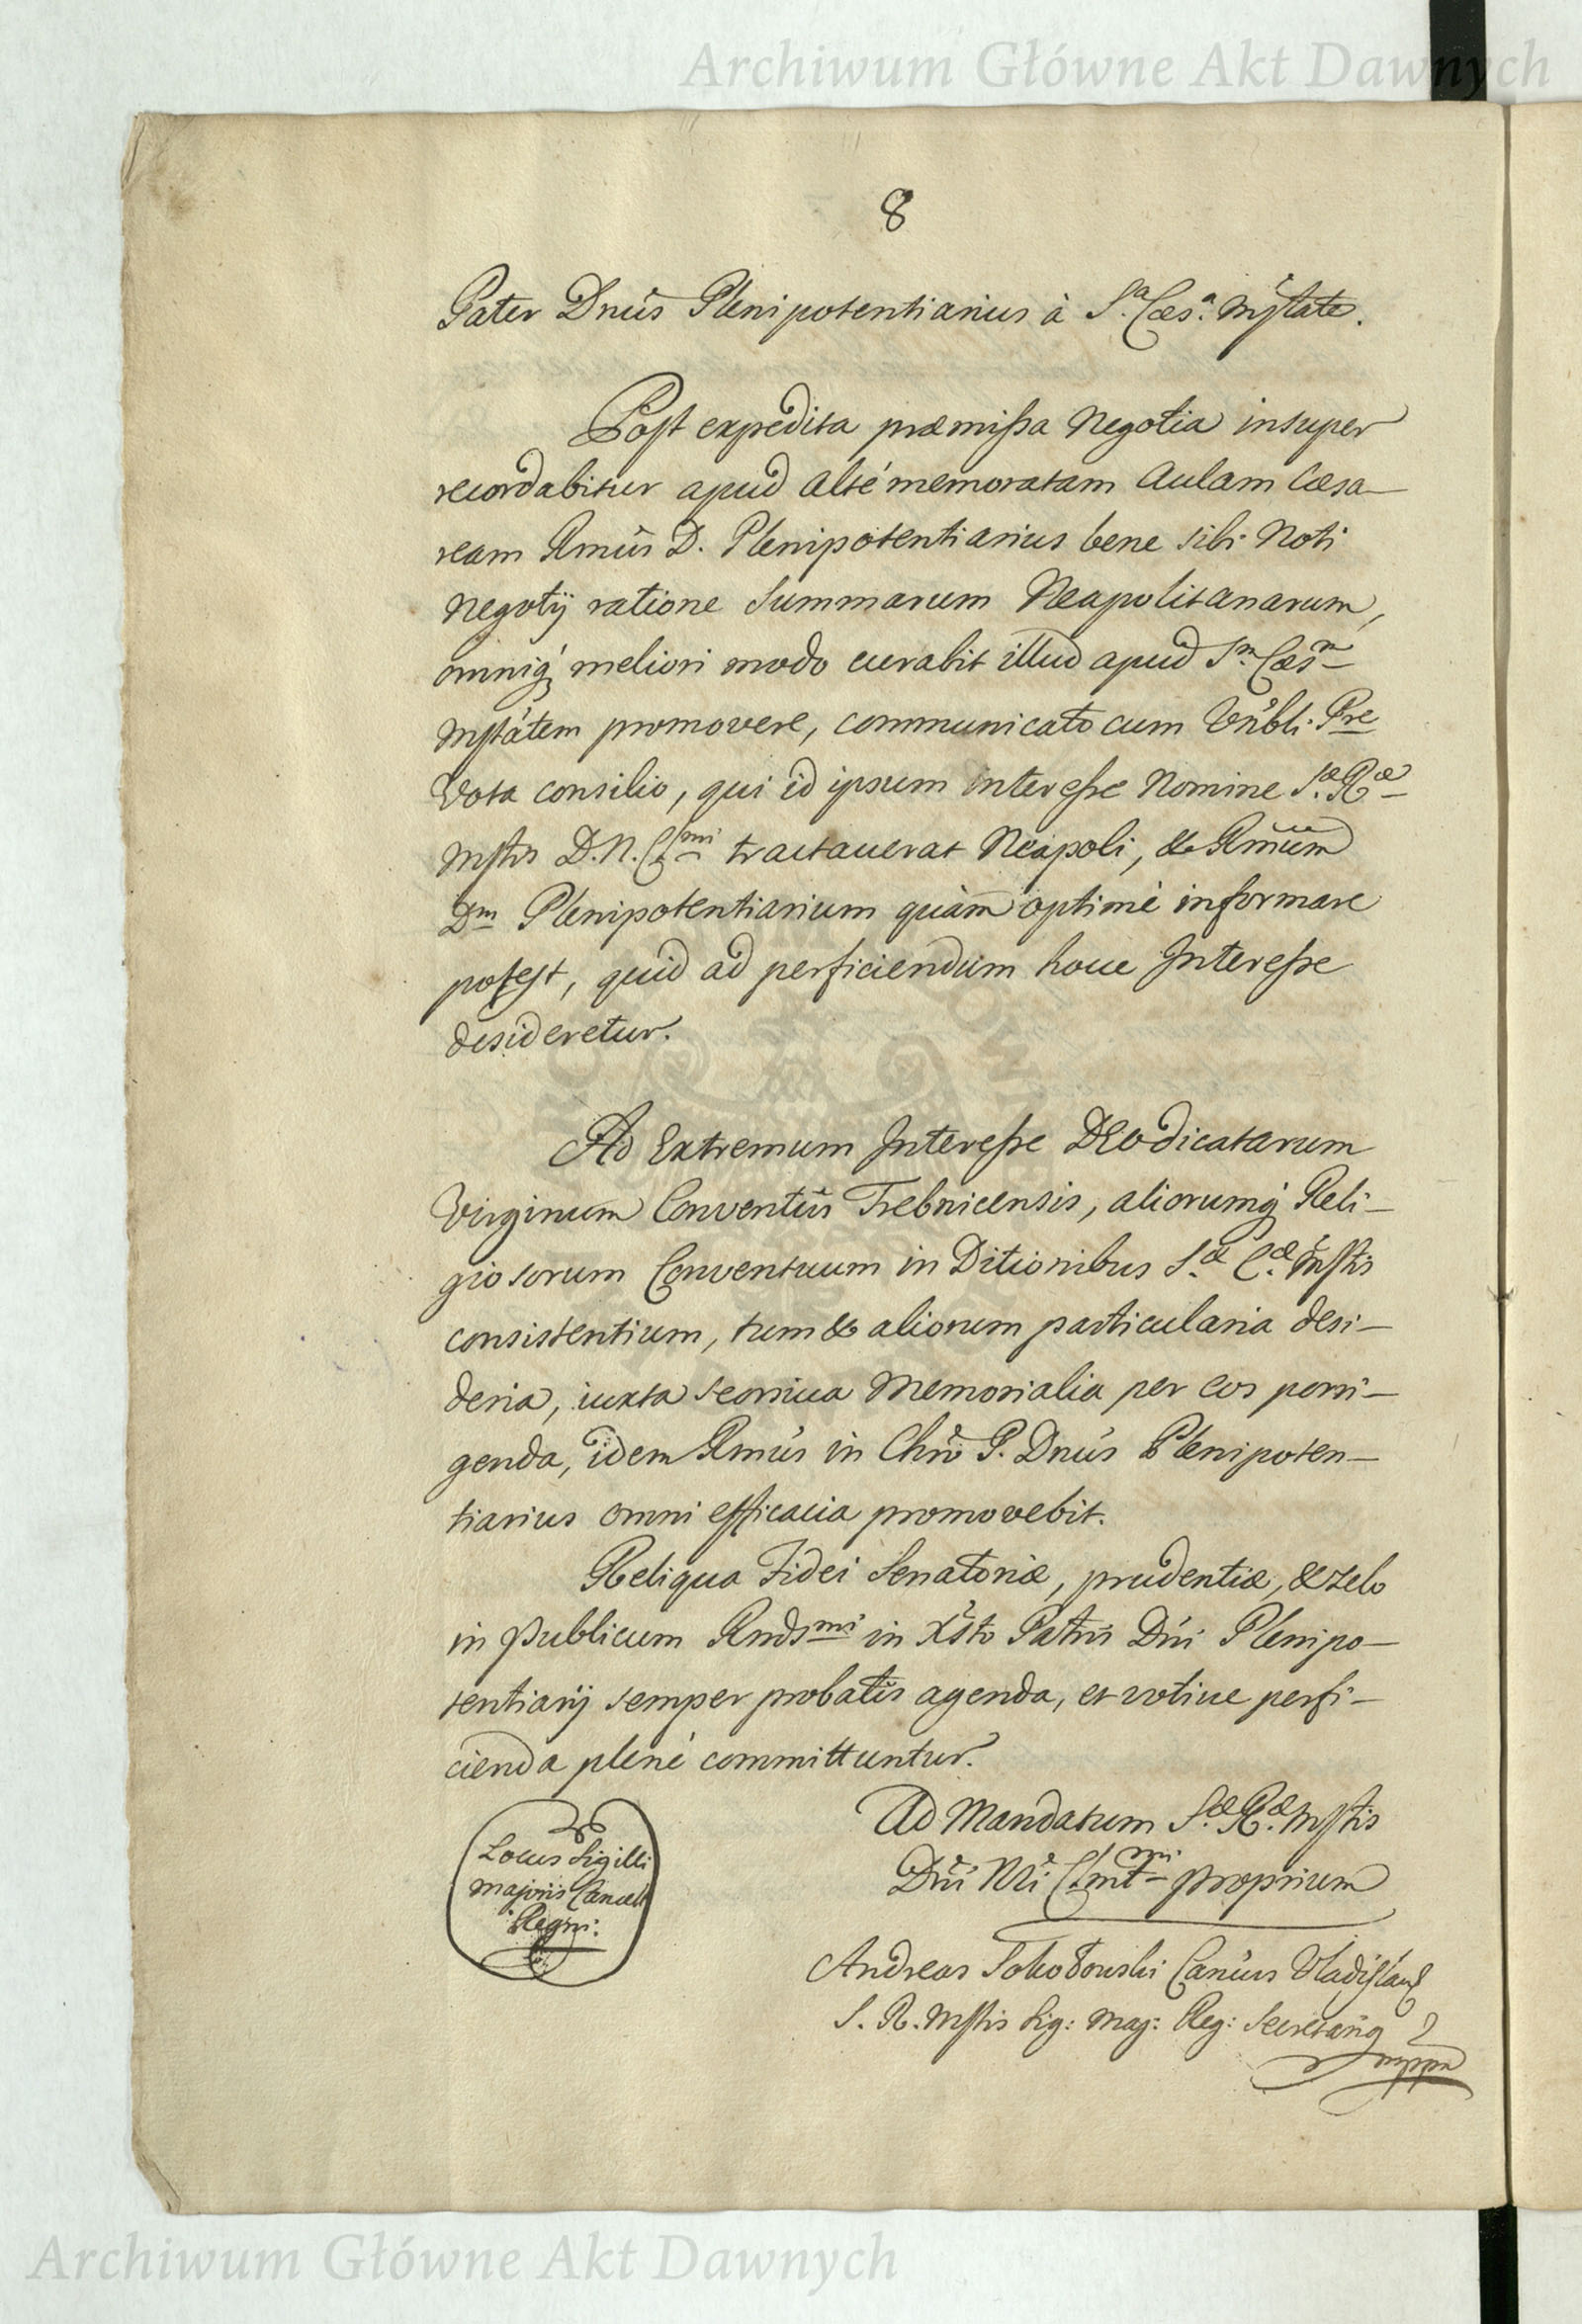 Archiwum Główne Akt Dawnych
8
Pater Dnus Plenipotentiarius à S.ª Cæs.ª Mjstate.
Post expedita præmissa Negotia insuper
recordabitur apud alté memoratam Aulam Cæsa-
ream Rmus D. Plenipotentiarius bene sibi Noti
Negotij ratione Summarum Neapolitanarum,
omniq́ meliori modo curabit illud apud S.m Cæs.m
Mstátem promovere, communicato cum Vnbli Pre
Vota consilio, qui id ipsum interesse Nomine S.æ R.æ
Mstis D. N. Cl.mi tractauerat Neapoli, & Rmum
Dm Plenipotentiarium quàm optimè informare
potest, quid ad perficiendum hocce Interesse
desideretur.
Ad Extremum Interesse DEO dicatarum
Virginum Conventûs Trebnicensis, aliorumq́ Reli-
giosorum Conventuum in Ditionibus S.æ C.æ Mstis
consistentium, tum & aliorum particularia desi-
deria, iuxta seorsiua Memorialia per eos porri-
genda, idem Rmus in Chro P. Dnus Plenipoten-
tiarius omni efficacia promovebit.
Reliqua Fidei Senatoriæ, prudentiæ, & zelo
in publicum Rndsmi in Xsto Patris Dni Plenipo-
tentiarij semper probatis agenda, et votiue perfi-
cienda plenè committuntur.
Ad Mandatum S.æ R.æ Mstis
Dni Nri Clmtmi proprium
Locus Sigilli
majoris Cancell
Regni:
Andreas Tokotowski Canius Vladislaus
S. R. Mstis Sig: Maj: Reg: Secretariq
mppa
Archiwum Główne Akt Dawnych